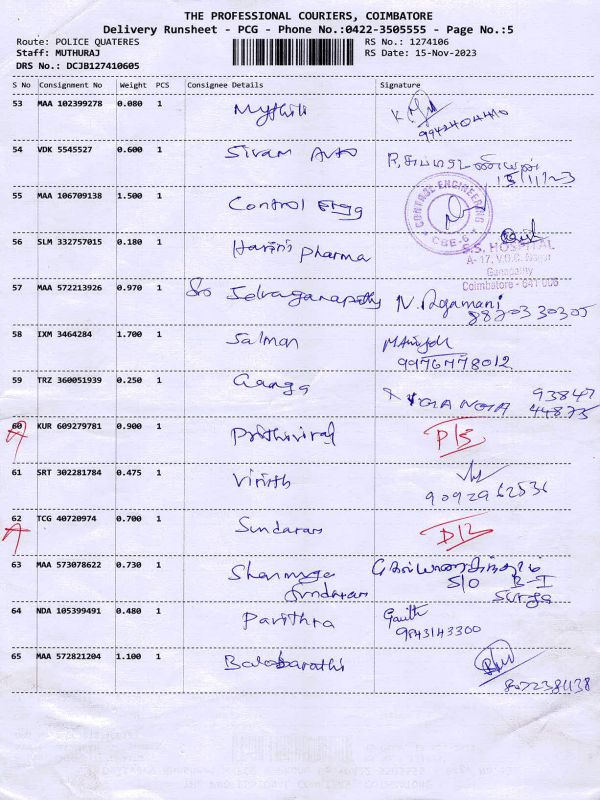 THE PROFESSIONAL COURIERS, COIMBATORE
Delivery Runsheet - PCG - Phone No.:0422-3505555 - Page No.:5
Route: POLICE QUATERES RS No.: 1274106
Staff: MUTHURAJ RS Date: 15-Nov-2023
DRS No.: DCJB127410605
S No Consignment No Weight PCS Consignee Details Signature
53 MAA 102399278 0.080 1 Mythili
9942404410
54 VDK 5545527 0.600 1 Sivam Auto
15/11/23
55 MAA 106709138 1.500 1 Control Engg
CONTROL ENGINEERING CBE-6
56 SLM 332757015 0.180 1 Harini Pharma
S.S. HOSPITAL
A-17, V.O.C. Nagar
Ganapathy
Coimbatore - 641 006
57 MAA 572213926 0.970 1 Sri Selvaganapathy N. Rgamani
58 IXM 3464284 1.700 1 Salman
9976778012
59 TRZ 360051939 0.250 1 Ganga 93847
44875
60 KUR 609279781 0.900 1 Prithiviraj D/3
61 SRT 302281784 0.475 1
9092962536
62 TCG 40720974 0.700 1 Sundaram D/2
63 MAA 573078622 0.730 1 Shanmuga
Sundaram S/O B-1
Surya
64 NDA 105399491 0.480 1 Pavithra
9843143300
65 MAA 572821204 1.100 1 Balabarathi